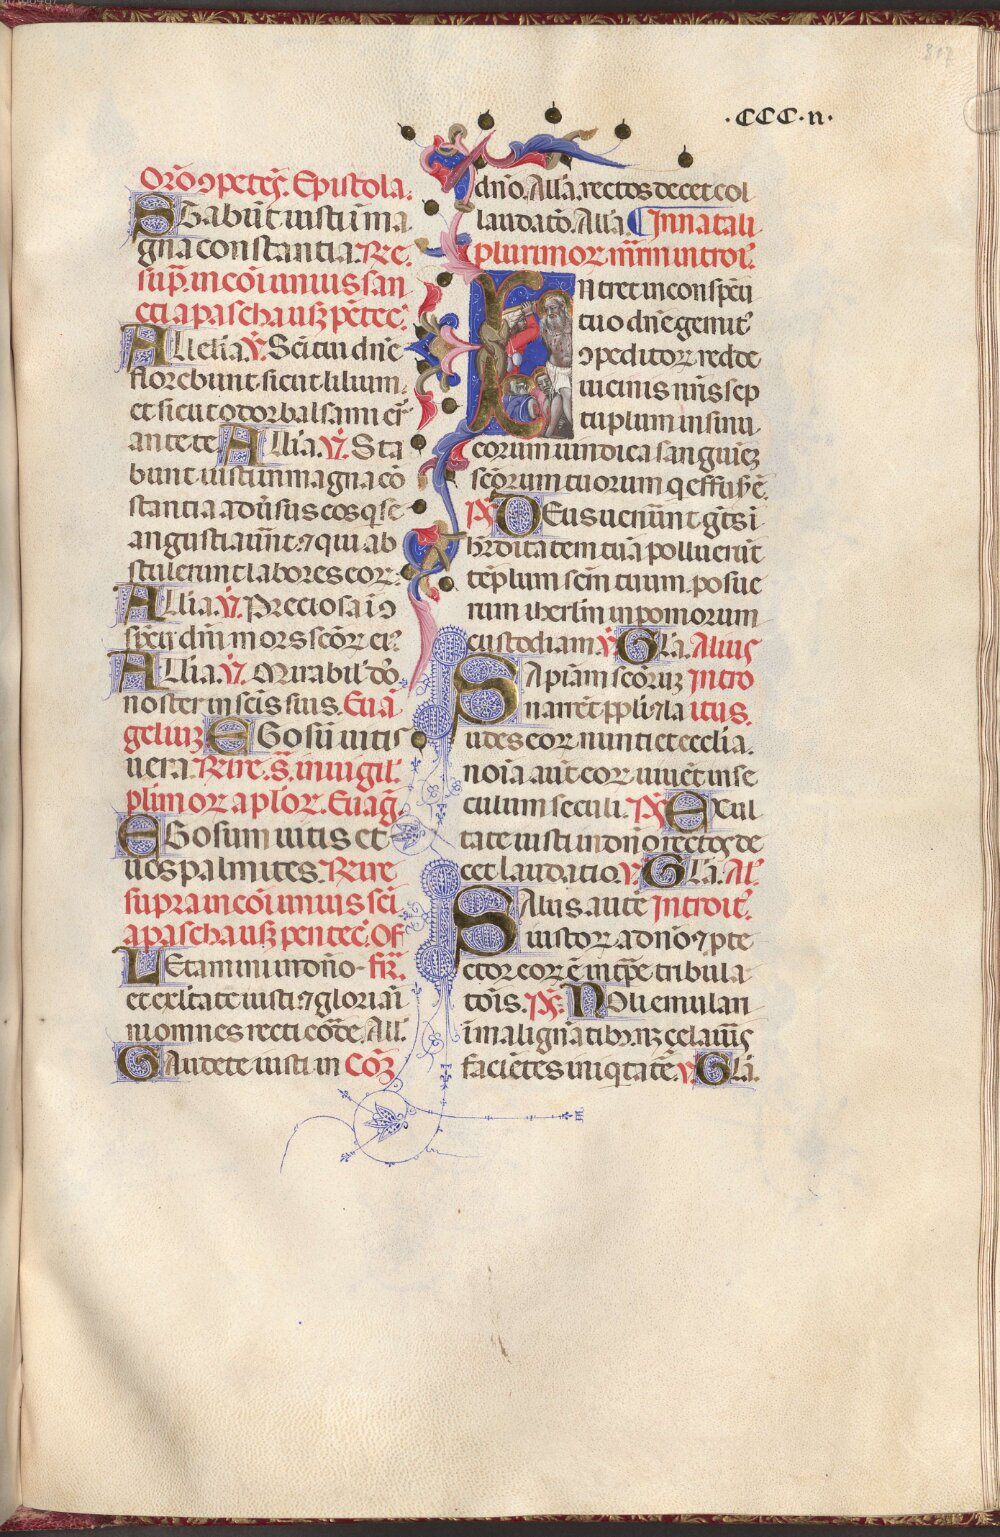 ·CCC·II·
Orõ ɔpetẽs. Epistola.
STabũt iusti in ma
gna constantia. Re
sup̃ in cõi unius san
cti a pascha usq3 pẽtec̃.
ALlelia. V̄. Sc̃i tui dñe
florebunt sicut lilium
et sicut odor balsami er̃
ante te. ALl̃ia. V̄. Sta
bunt iusti in magna cõ
stantia aduersus eos q̃ se
angustiauert̃ ⁊ qui ab
stulerunt labores eoꝝ.
ALl̃ia. V̄. Preciosa ĩ ɔ
spectu dñi mors scõꝝ ei⁹.
ALl̃ia. V̄. Mirabil' dõ.
noster in scĩs suis. Euã
geliuȝ EGo sũ uitis
uera. Rire. s̃. in uigil'
plimoꝝ aploꝝ. Euãg̃.
EGo sum uitis et
uos palmites. Rire
supra in cõi unius sc̃i
a pascha usq3 pentec̃. Of
LEtamini in dño fir̃.
et exl̃tate iusti ⁊ gloriam̃
ni omnes recti corde. All'.
GAudete iusti in Cõȝ
dño. All̃a. rectos decet col
laudatõ. All̃a. In natali
plurimoꝝ mr̃m introi⁹.
INtret in conspc̃u
tuo dñe gemit⁹
ɔpeditoꝝ redde
uicinis nr̃is sep
tuplum in sinu
eorum uindica sanguineȝ
scõrum tuorum q̃ effus̃ ẽ.
Ps̃ DEus uenẽunt gẽtes ĩ
hr̃ditatem tuã polluerũt
tẽplum sc̃m tuum posue
runt iherl̃m in pomorum
custodiam. V̄. Gl̃a. Alius
SApiam̃ scõruȝ Intro
narrẽt ppl̃i ⁊ la itus.
udes eoꝝ nuntiet ecclia.
noĩa aut̃ eoꝝ uiuẽt in se
culum seculi. Ps̃ Exul
tate iusti in dño rectos de
cet laudatio. V̄. Gl̃a. Al'
SAlus autẽ Introit⁹.
iustoꝝ a dño ⁊ ɔpte
ctor eoꝝ ẽ in tp̃e tribula
tõis. Ps̃. NOli emulari
in malignãtib⁹ neȝ celaueris
faciẽtes iniq̃tatẽ. V̄. Gl̃a.